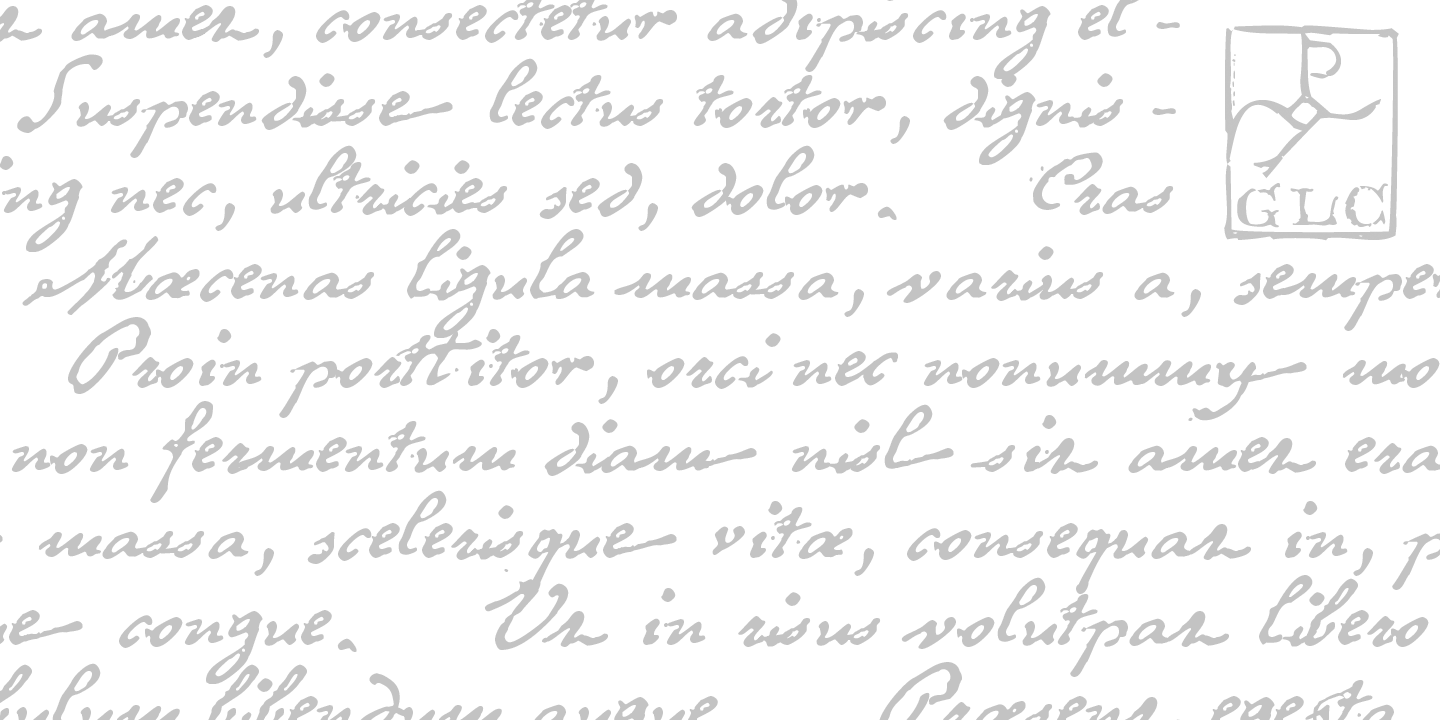 amet, consectetur adipiscing el -
Suspendisse lectus tortor, dignis -
ing nec, ultricies sed, dolor. Cras
GLC
Mæcenas ligula massa, varius a, semper
Proin porttitor, orci nec nonummy mo
non fermentum diam nisl sit amet era
massa, scelerisque vitæ, consequat in, p
ue congue. Ut in risus volutpat libero
bulum bibendum augue Præsent egesta